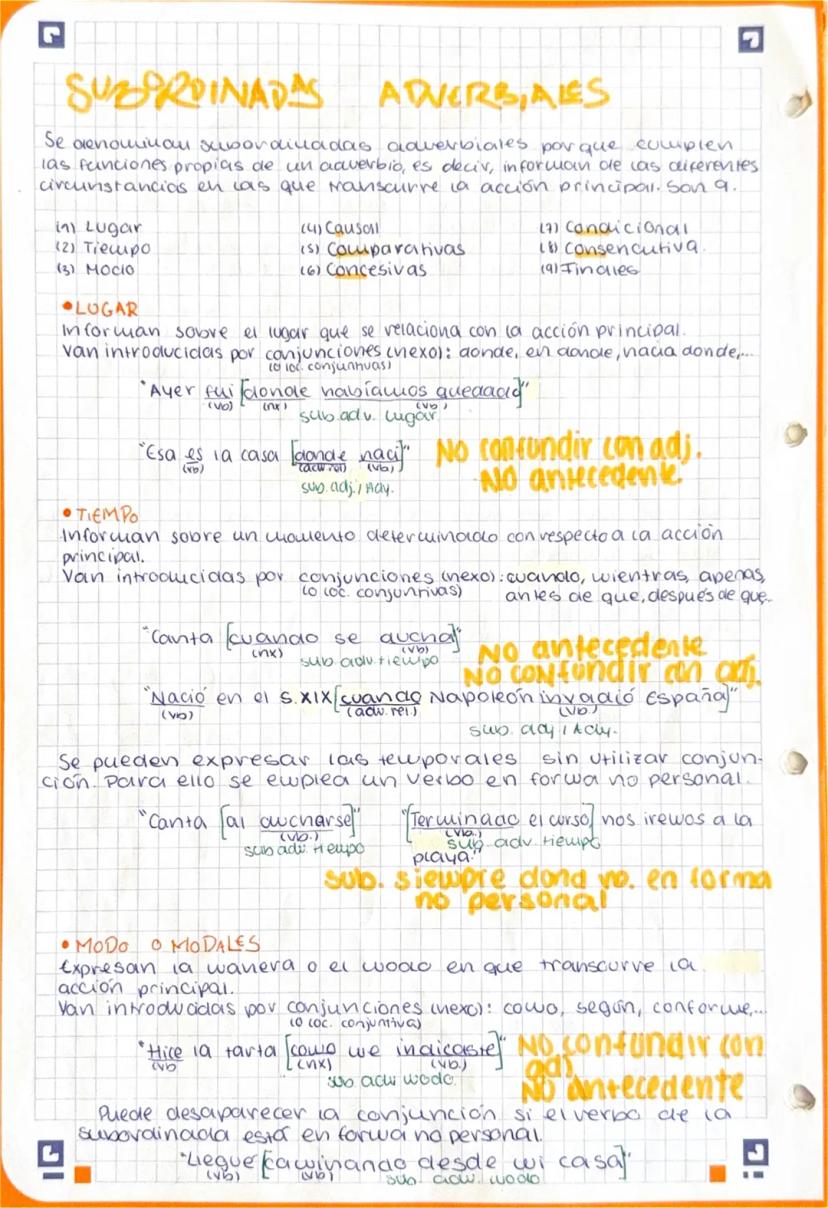 SUBORDINADAS ADVERBIALES
Se denominan subordinadas adverbiales porque cumplen
las funciones propias de un adverbio, es decir, informan de las diferentes
circunstancias en las que transcurre la acción principal. Son 9.
(1) Lugar (4) Causal (7) Condicional
(2) Tiempo (5) Comparativas (8) Consencutiva.
(3) Modo (6) Concesivas (9) Finales
• LUGAR
Informan sobre el lugar que se relaciona con la acción principal.
Van introducidas por conjunciones (nexo): donde, en donde, hacia donde,...
(o loc. conjuntivas)
"Ayer fui [donde habíamos quedado]"
(vb) (nx) (vb)
sub. adv. lugar
"Esa es la casa [donde nací]" NO confundir con adj.
(vb) (adv. rel) (vb) NO antecedente.
sub. adj. / Ady.
• TIEMPO
Informan sobre un momento determinado con respecto a la acción
principal.
Van introducidas por conjunciones (nexo): cuando, mientras, apenas,
(o loc. conjuntivas) antes de que, después de que...
"Canta [cuando se ducha]" NO antecedente
(nx) (vb) NO confundir con adj.
sub adv. tiempo
"Nació en el S.XIX [cuando Napoleón invadió España]"
(vb) (adv. rel.) (vb)
sub. adj / Ady.
Se pueden expresar las temporales sin utilizar conjun-
ción. Para ello se emplea un verbo en forma no personal.
"Canta [al ducharse]" "[Terminado el curso] nos iremos a la
(vb.) (vb.)
sub adv. tiempo sub adv. tiempo
playa."
sub. siempre dond vb. en forma
no personal
• MODO O MODALES
Expresan la manera o el modo en que transcurre la
acción principal.
Van introducidas por conjunciones (nexo): como, según, conforme,...
(o loc. conjuntiva)
"Hice la tarta [como me indicaste]" NO confundir con
(vb (nx) (vb.) adj
sub adv modo. NO antecedente
Puede desaparecer la conjunción si el verbo de la
subordinada está en forma no personal.
"Llegue [caminando desde mi casa]"
(vb) (vb) sub adv. modo